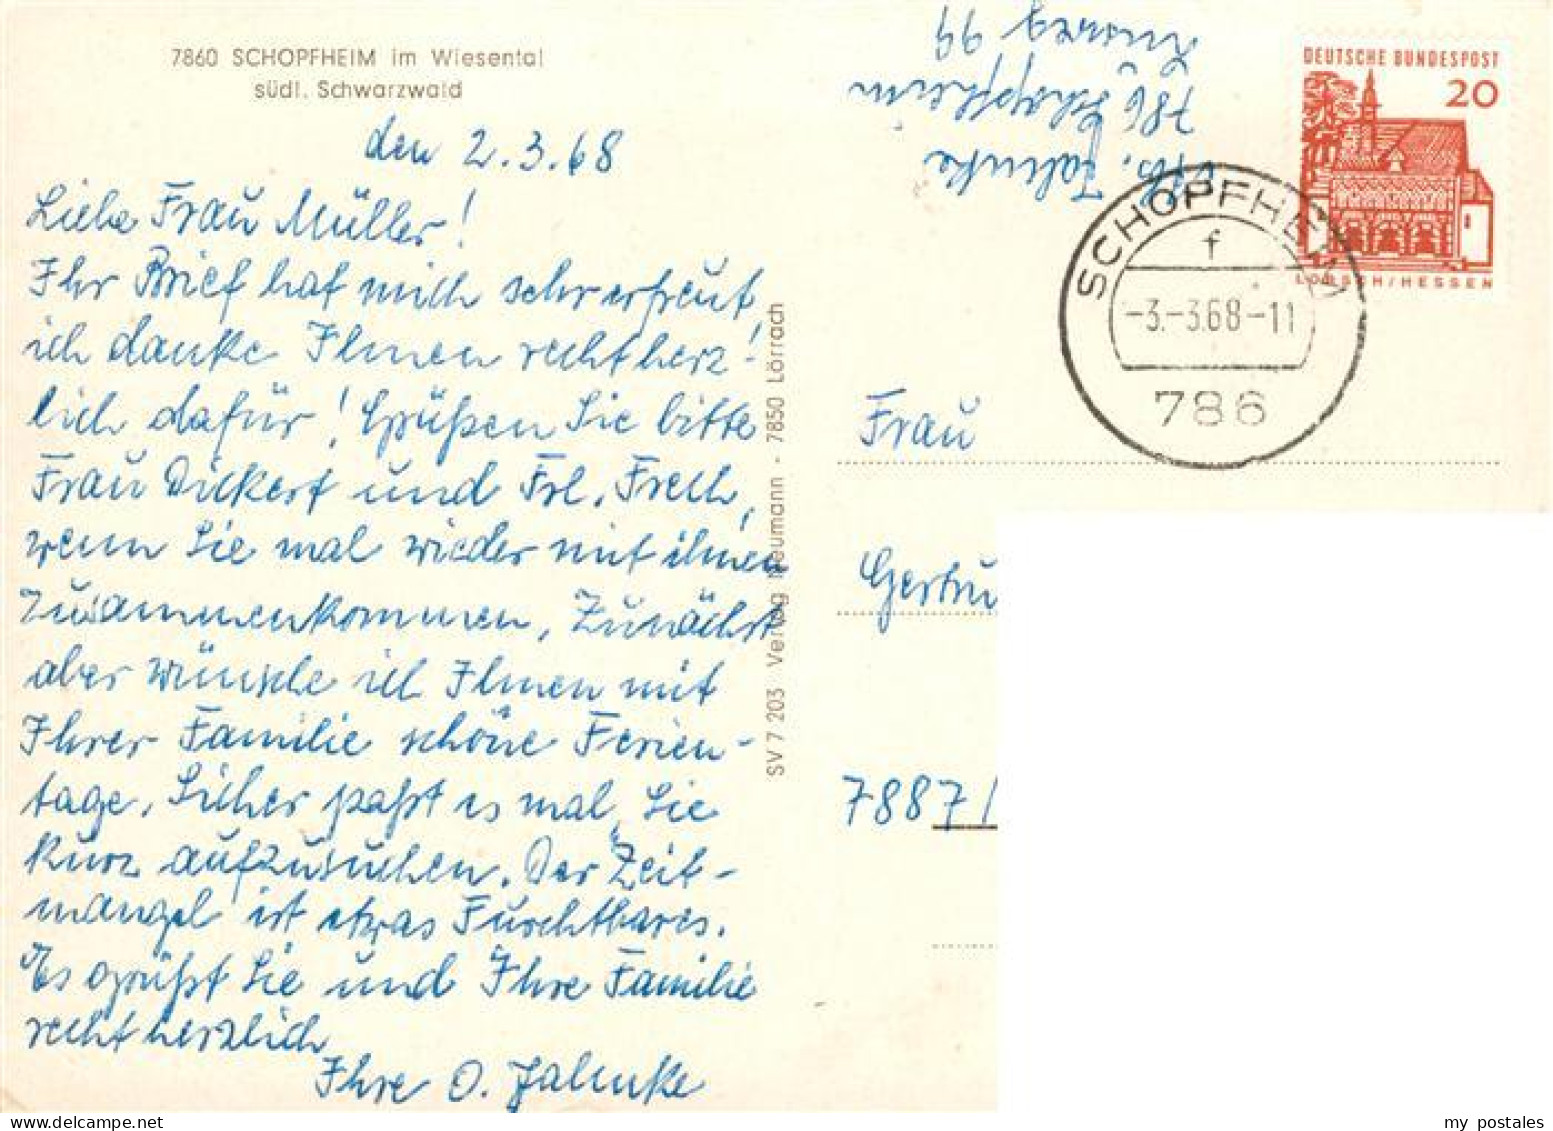 7860 SCHOPFHEIM im Wiesental
südl. Schwarzwald
den 2.3.68
Liebe Frau Müller!
Ihr Brief hat mich sehr erfreut,
ich danke Ihnen recht herz-
lich dafür! Grüßen Sie bitte
Frau Dickert und Frl. Frech,
wenn Sie mal wieder mit ihnen
zusammenkommen. Zunächst
aber wünsche ich Ihnen mit
Ihrer Familie schöne Ferien-
tage. Sicher paßt es mal, Sie
kurz aufzusuchen. Der Zeit-
mangel ist etwas Furchtbares.
Es grüßt Sie und Ihre Familie
recht herzlich
Ihre O. Jahnke
SV 7 203 Verlag Neumann - 7850 Lörrach
Abs. Jahnke
786 Schopfheim
99
DEUTSCHE BUNDESPOST
20
LORSCH/HESSEN
SCHOPFHEIM
f
-3.-3.68-11
786
Frau
Gertru
7887
my postales